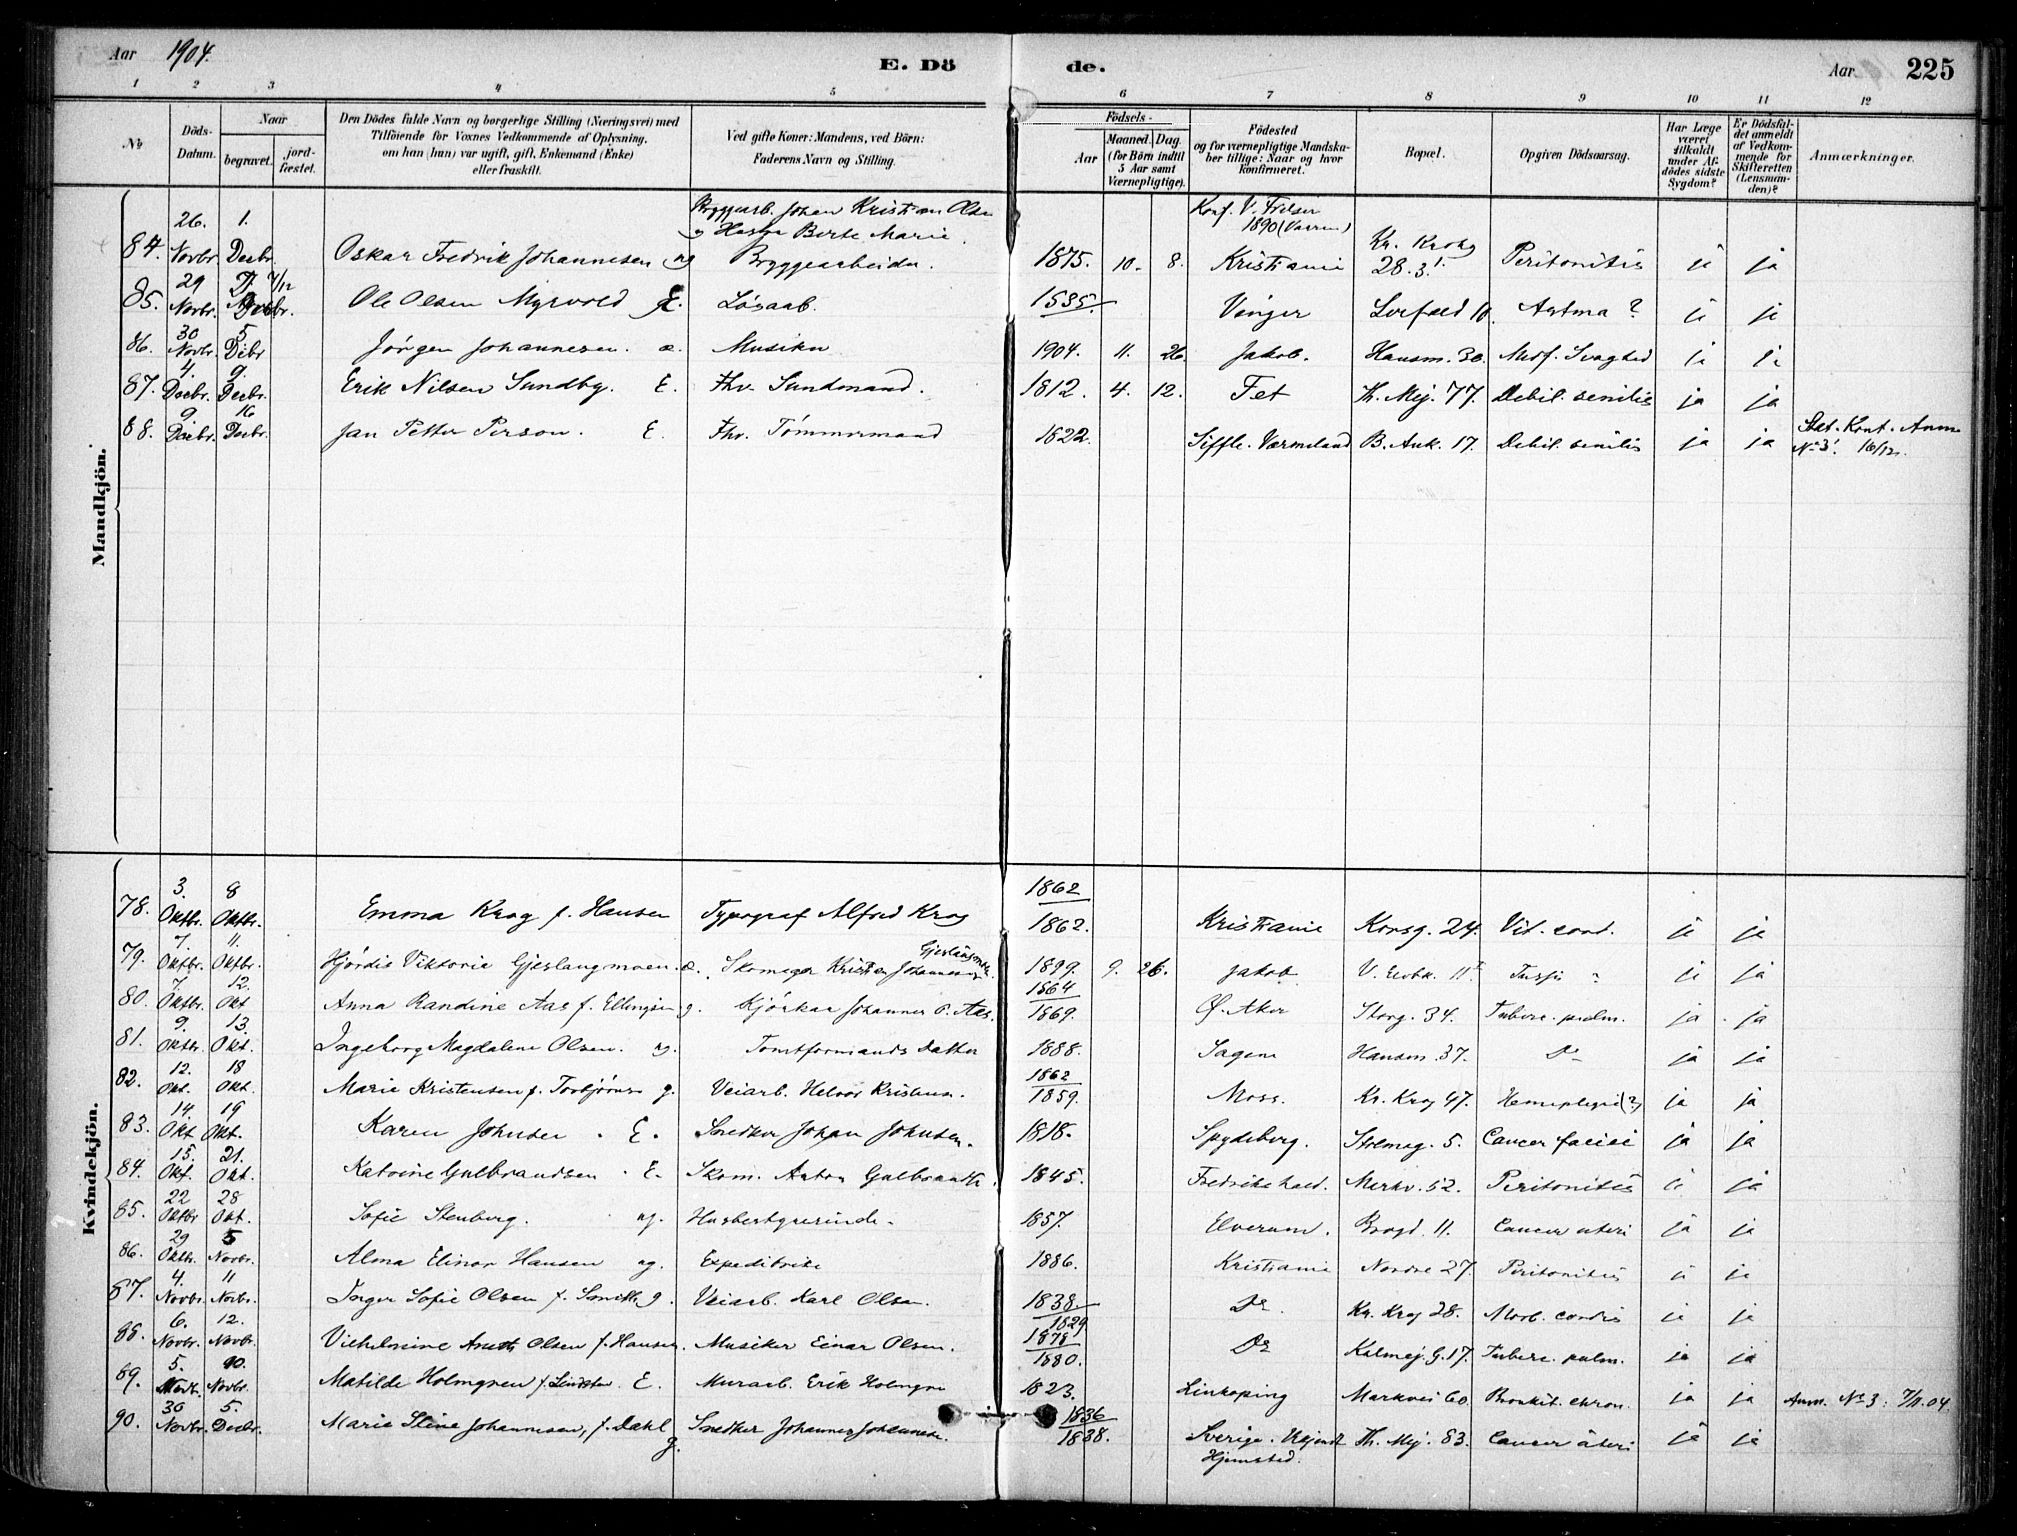 Aar 1904. E. Dö de. Aar 225
1 2 3 4 5 6 7 8 9 10 11 12
№ Döds-Datum. Naar begravet. jord-fæstet. Den Dödes fulde Navn og borgerlige Stilling (Næringsvei) med Tilföiende for Voxnes Vedkommende af Oplysning, om han (hun) var ugift, gift, Enkemand (Enke) eller fraskilt. Ved gifte Koner: Mandens, ved Börn: Faderens Navn og Stilling. Födsels- Aar Maaned. Dag. (for Börn indtil 5 Aar samt Værnepligtige). Födested og for værnepligtige Mandskaber tillige: Naar og hvor konfirmeret. Bopæl. Opgiven Dödsaarsag. Har Læge været tilkaldt under Afdödes sidste Sygdom? Er Dödsfaldet anmeldt af Vedkommende for Skifteretten (Lensmanden)? Anmærkninger.
Mandkjön.
Bryggearb. Johan Kristian Olsen Konf. V. Frelser
Berte Marie 1890
84. 26. Novbr. 1. Decbr. Oskar Fredrik Johannesen ug Bryggearbeider. 1875. 10. 8. Kristiania Kr. Krohg 28.3. Peritonitis ja ja
85. 29 Novbr. 7/12 Ole Olsen Myrvold E. Løsarb. 1835. Vinger Astma ? ja ja
86. 30 Novbr. 5 Dcbr Jørgen Johannesen. æ. Musiker 1904. 11. 26. Jakob. Hausm. 30. Medf. Svaghed ja ja
87. 4. Decbr. 9. Decbr. Erik Nilsen Sundby. E. Fhv. Sundmand. 1812. 4. 12. Fet Th. Mej. 77. Debil. senilis ja ja
88. 9 Decbr. 16 Decbr. Jan Petter Person. E. Fhv. Tömmermand 1822. Siffle. Værmeland B. Ank. 17. Debil. senilis ja ja Stat. Kont. Anm №3. 16/12.
Kvindekjön.
78. 3. Oktbr. 8 Oktbr. Emma Krog f. Hansen Typograf Alfred Krog 1862 1862. Kristiania Korsg. 24. Vit. cord. ja ja
79. 7. Oktbr. 11. Oktbr. Hjördis Viktoria Gjeslangmoen æ. Skomager Kristian Johannesen 1899. 9. 26. Jakob. ja ja
80. 7. Oktbr. 12. Okt Anna Randine Aas f. Ellingsen g. Kjörkar Johannes P. Aas. 1864 1869. Ø. Aker Storg. 34. Tuberc. pulm. ja ja
81. 9. Oktbr. 13. Okt. Ingeborg Magdalene Olsen. ug. Tomtformands Datter 1888. Sagene Hausm. 37. Do ja ja
82. 12. Okt. 18 Okt. Marie Kristensen f. Torbjörns g. Veiarb. Helvor Kristens. 1862 1859. Moss. Kr. Krog 47. Hemiplegi (?) ja ja
83. 14. Okt 19 Okt. Karen Johnsen. E. Snedker Johan Johnsen. 1818. Spydeberg. Stolmag. 5. Cancer faciei ja ja
84. 15. Okt. 21. Okt. Katrine Gulbrandsen. E. Skom. Anton Gulbrands. 1845. Fredrikshald. Merkv. 52. Peritonitis ja ja
85. 22 Oktbr 28 Okt. Sofie Stenberg. ug. Husbestyrerinde. 1857. Elverum. Brogd. 11. Cancer uteri ja ja
86. 29 Oktbr. 5 Novbr. Alma Elinor Hansen ug. Expeditrice 1886. Kristiania Nordre 27. Peritonitis ja ja
87. 4. Novbr. 11 Novbr. Inger Sofie Olsen f. Smith g. Veiarb. Karl Olsen. 1838 1829 Do Kr. Krog 28. Morb. cordis ja ja
88. 6. Novbr. 12. Novbr. Vilhelmine Olsen f. Hansen. Musiker Einar Olsen. 1878 1880. Do Kalmej. G. 17. Tuberc. pulm. ja ja
89. 5. Novbr. 10. Novbr. Matilde Holmgren E. Murarb. Erik Holmgren 1823. Linköping Markvei 60. Bronkit. chron. ja ja Anm. №3. 7/11.04.
90. 30 Novbr. 5. Decbr. Marie Stine Johannesen, f. Dahl g. Snedker Johannes Johannesen. 1836 1838. Sverige. Th. Mej. 83. Cancer uteri ja ja